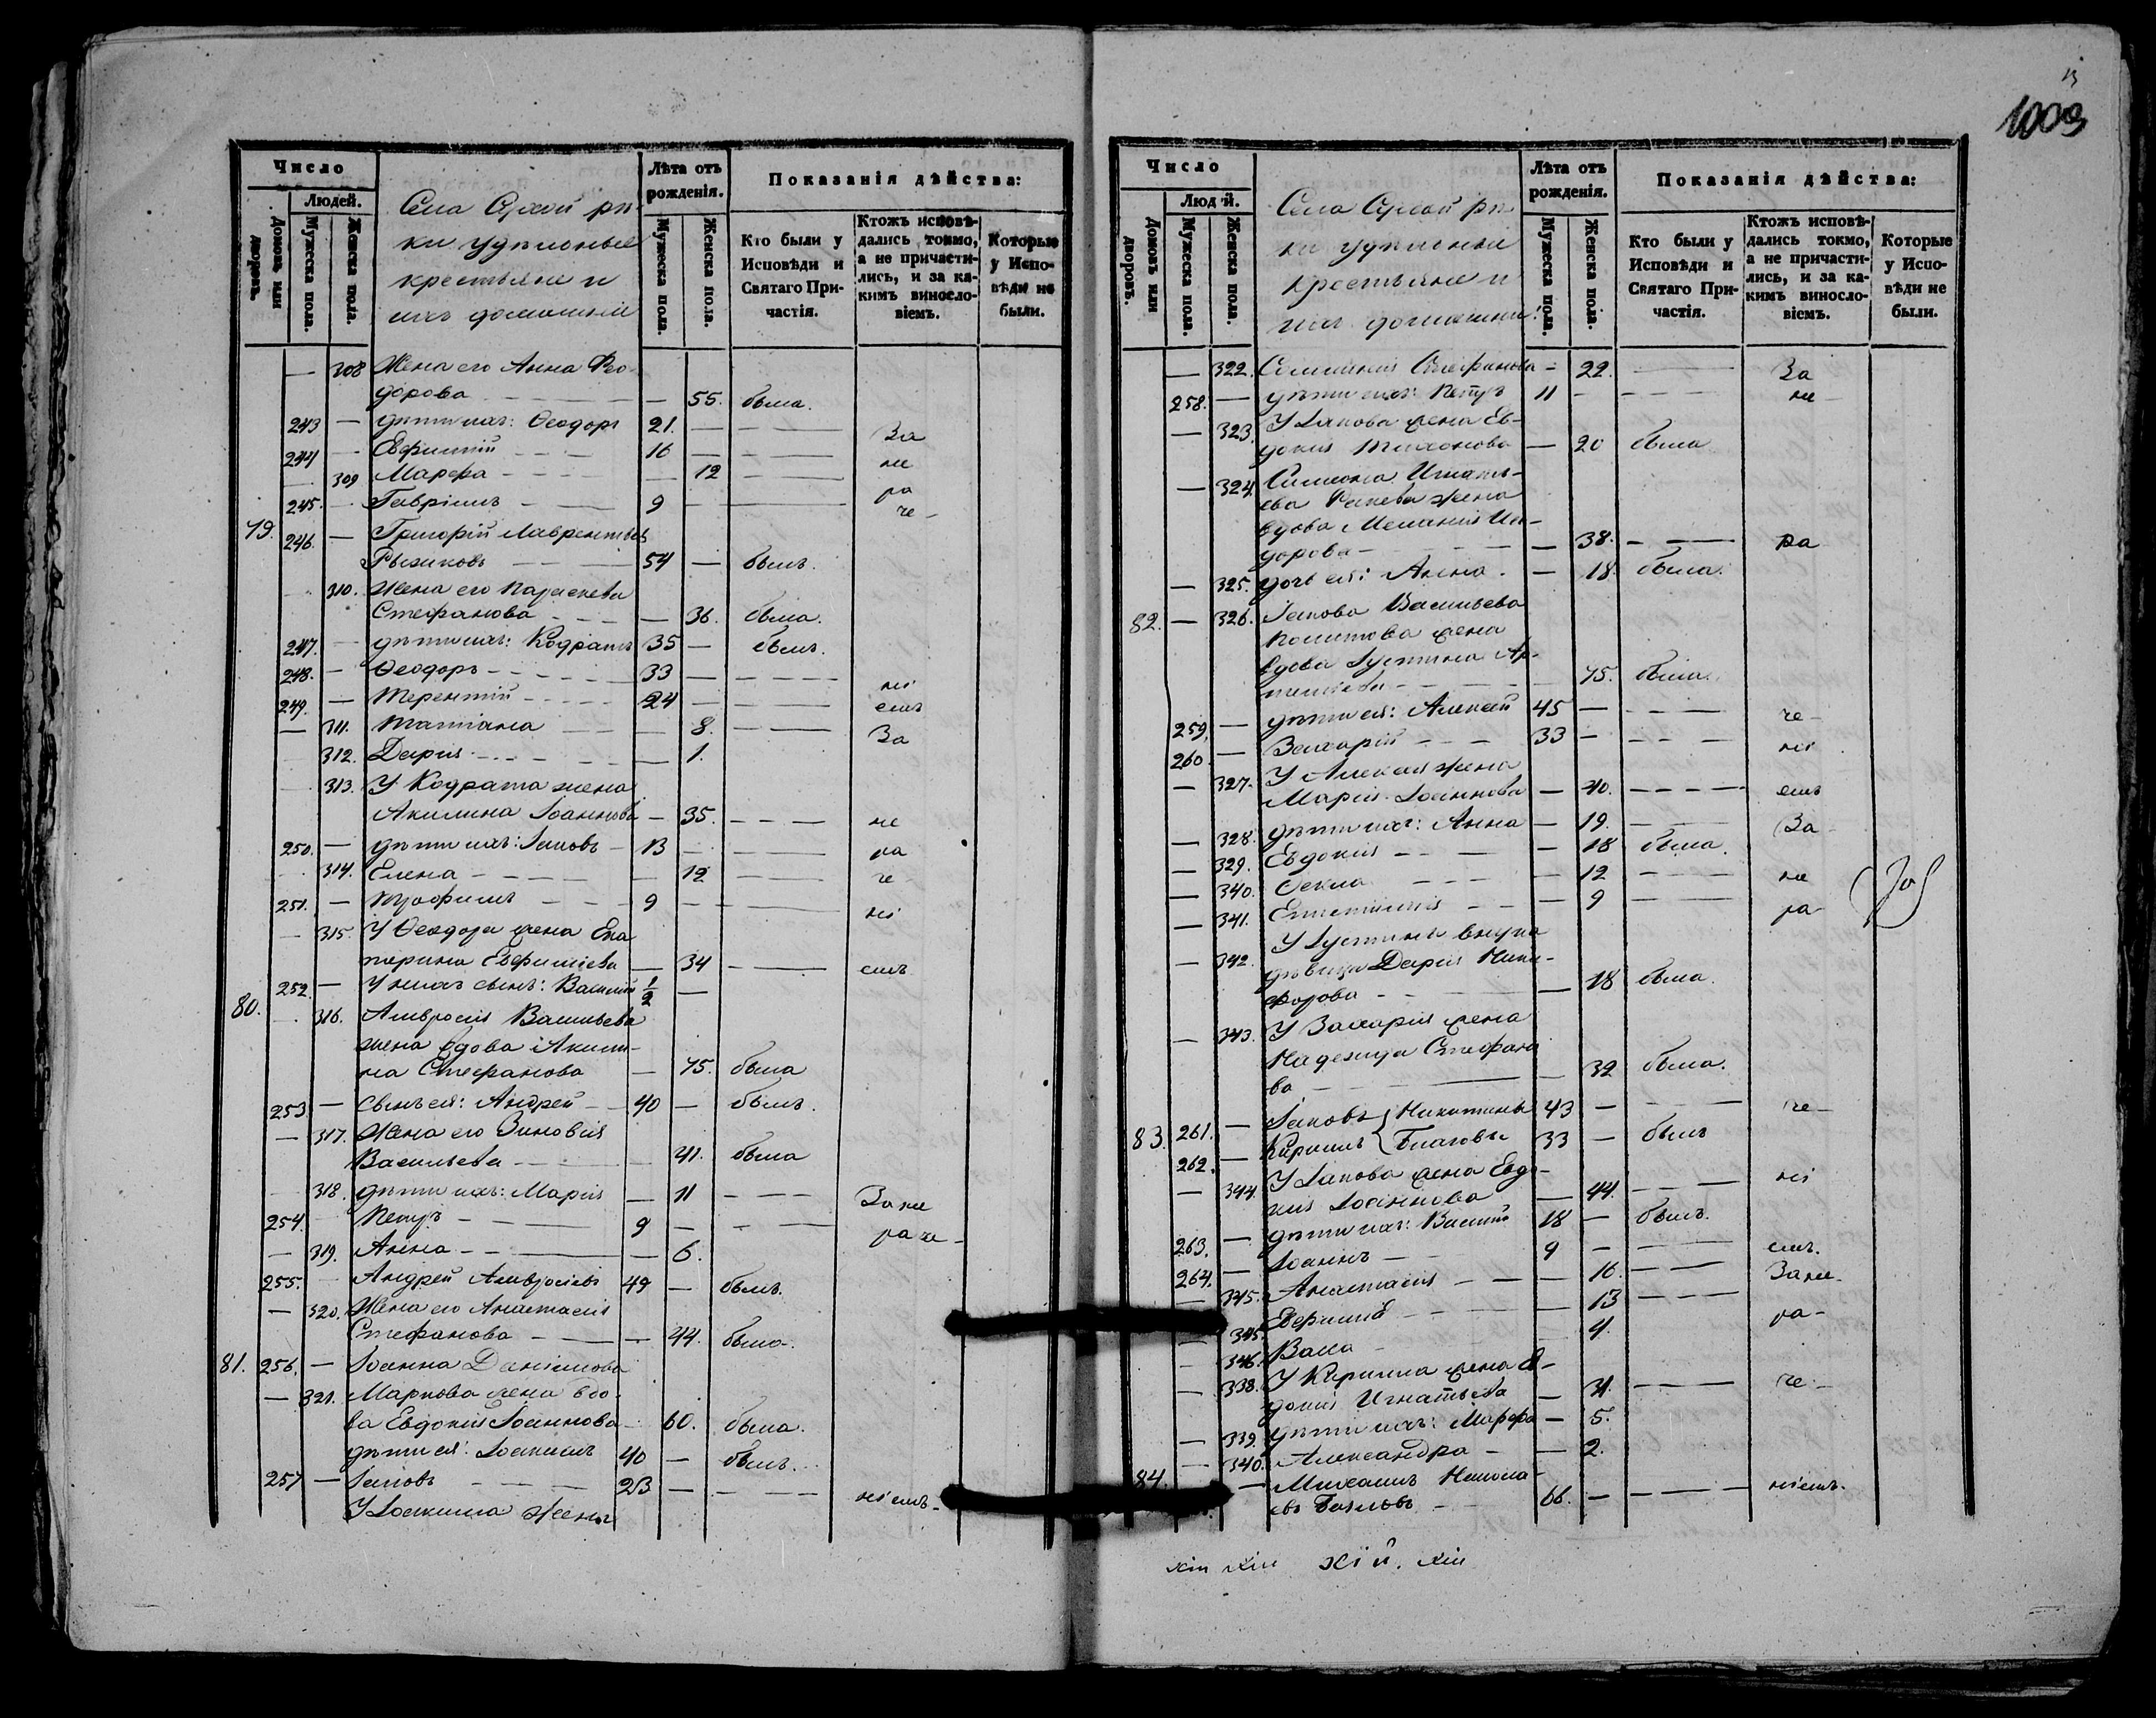 1009
Число
Людей.
Домовъ или дворовъ.
Мужеска пола.
Женска пола.
Села Сухой рѣ-
ки удѣльные
крестьяне и
ихъ домашніе
Лѣта отъ рожденія.
Мужеска пола.
Женска пола.
Показанія дѣйства:
Кто были у Исповѣди и Святаго Причастія.
Ктожъ исповѣ-
дались токмо,
а не причасти-
лись, и за ка-
кимъ винословіемъ.
Которые у Исповѣди не были.
— 308 Жена его Анна Ѳео-
дорова — 55. была.
243 — дѣти ихъ: Ѳеодоръ 21. — За
244 — Евфимій 16 — не
— 309 Марѳа — 12 — ра
245. — Гавріилъ 9 — че-
79. 246. — Григорій Лаврентьевъ
Рыжиковъ 54 — былъ.
310. Жена его Параскева
Стефанова — 36. была.
247. — дѣти ихъ: Кодратъ 35 — былъ.
248. — Ѳеодоръ 33 — ні
249. — Терентій 24 — емъ
— 311. Татіана — 8. — За
312. Дарія — 1.
313. У Кодрата жена
Акилина Іоаннова — 35. — не
250. — дѣти ихъ: Іаковъ 13 — ра
314. Елена — 12 — че
251. — Трофимъ 9 — ні
— 315. У Ѳеодора жена Ека
терина Евфиміева — 34 — емъ
252. — У нихъ сынъ: Василій 1/2 —
80. 316. Амвросія Васильева
жена вдова Акили-
на Стефанова — 75. была
253 — сынъ ея: Андрей 40 — былъ.
— 317. Жена его Зиновія
Васильева — 41. была
318. дѣти ихъ: Марія — 11 — За не
254. Петръ 9 — ра че-
— 319. Анна — 6.
255. Андрей Амвросіевъ 49 — былъ.
— 320. Жена его Анастасія
Стефанова — 44. была.
81. 256. — Іоанна Даніилова
— 321. Маркова жена вдо-
ва Евдокія Іоаннова 60. была.
дѣти ея: Іоакимъ 40 — былъ.
257 — Іаковъ 23 — ніемъ-
У Іоакима жена
Число
Людей.
Домовъ или дворовъ.
Мужеска пола.
Женска пола.
Села Сухой рѣ-
ки удѣльные
крестьяне и
ихъ домашніе
Лѣта отъ рожденія.
Мужеска пола.
Женска пола.
Показанія дѣйства:
Кто были у Исповѣди и Святаго Причастія.
Ктожъ исповѣ-
дались токмо,
а не причасти-
лись, и за ка-
кимъ винословіемъ.
Которые у Исповѣди не были.
— 322. Стефанова — 22. — За
258. — дѣти ихъ: Петръ 11 — не-
— 323. У Іакова жена Ев-
докія Тихонова — 20 была
— 324. Симеона Игнать-
ева жена
вдова Меланія Иси-
дорова — 38. — ра
— 325. дочь ея: Анна — 18. была.
82. — 326. Іакова Васильева
жена
вдова Іустина Ар-
теміева 75. была.
259. — дѣти ея: Алексей 45 — че-
260 — Захарій 33 — ні
— 327. У Алексея жена
Марія Іоаннова — 40. — емъ
— 328. дѣти ихъ: Анна — 19. — За-
— 329. Евдокія — 18 была.
— 340. Ѳекла — 12 — не
— 341. Епистимія — 9 — ра-
— 342. У Іустины внука
дѣвица Дарія Ники-
форова — 18 была.
— 343. У Захарія жена
Надежда Стефано
ва — 32 была.
83. 261. — Іаковъ } Никитины 43 — че-
262. — Кирилъ { 33 — былъ
— 344. У Іакова жена Евдо-
кія Іоаннова — 44. — ні
263. — дѣти ихъ: Василій 18 — былъ.
264. — Іоаннъ 9 — емъ.
— 345. Анастасія — 16. — За не-
345. — 13 — ра-
— 346. Васса — 4.
— 338. У Кирилла жена Ев-
докія Игнатьева — 31. — че-
— 339. дѣти ихъ: Марѳа — 5.
— 340. Александра — 2.
84. — Михаилъ Никола-
евъ 66. — ніемъ.
хіи хіи хій. хіи